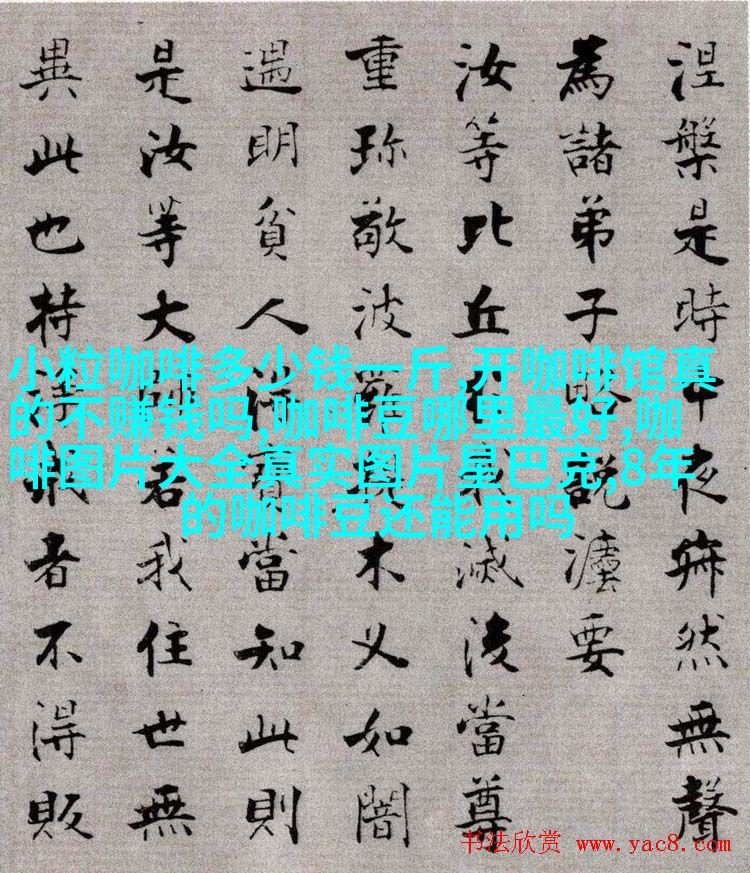 涅槃是時中夜寂然無聲
為諸弟子略說灋要
汝等比丘於我滅後當尊
重珍敬波羅提木叉如闇
遇明貧人得寶當知此則
是汝等大師若我住世無
異此也持淨戒者不得販
小粒咖啡多少钱一斤,开咖啡馆真
的不赚钱吗,咖啡豆哪里最好,咖
啡图片大全真实图片星巴克,8年
的咖啡豆还能用吗
书法欣赏 www.yac8.com